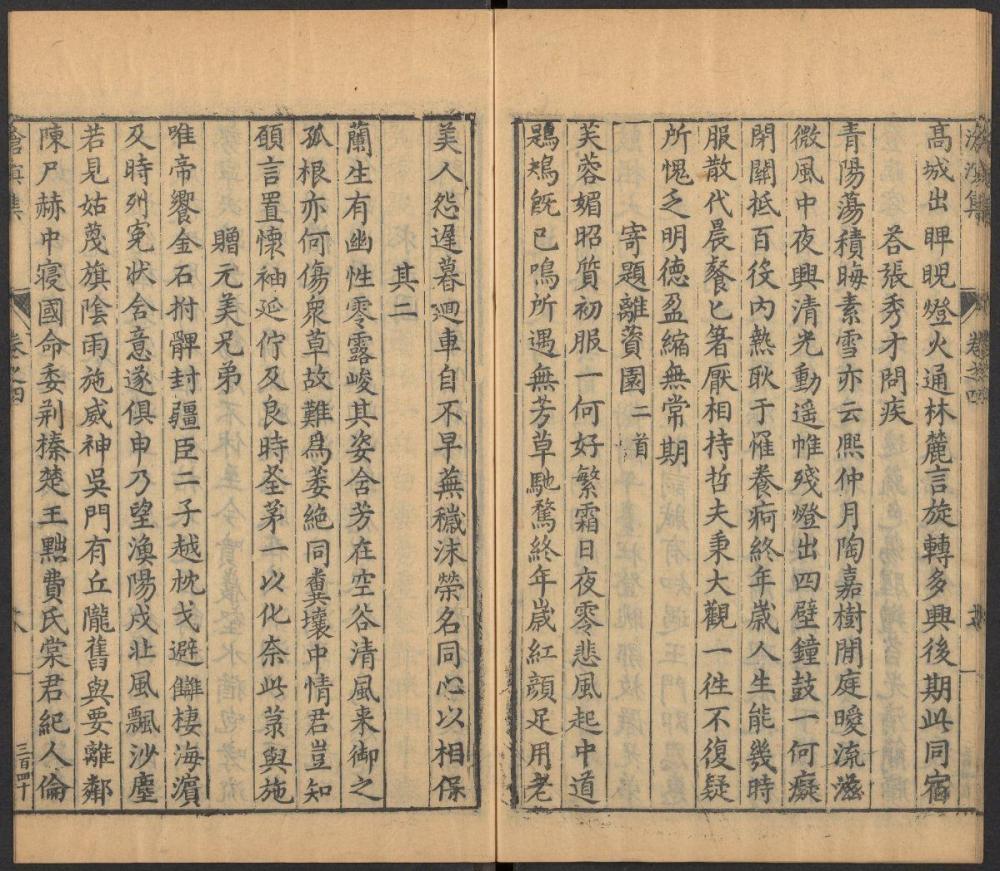 滄溟集 卷之四
高城出睥睨燈火通林麓言旋轉多興後期此同宿
荅張秀才問疾
青陽蕩積晦素雪亦云熈仲月陶嘉樹閒庭曖流滋
微風中夜興清光動遥帷殘燈出四壁鐘鼓一何癡
閉關抵百役内熱耿于惟養痾終年歲人生能幾時
服散代晨餐匕箸厭相持哲夫秉大觀一徃不復疑
所愧乏明德盈縮無常期
寄題離薋園二首
芙蓉媚昭質初服一何好繁霜日夜零悲風起中道
鶗鴂旣已鳴所遇無芳草馳騖終年歲紅顔足用老
美人怨遲暮迴車自不早蕪穢沬榮名同心以相保
其二
蘭生有幽性零露峻其姿含芳在空谷清風来御之
孤根亦何傷衆草故難爲萎絶同糞壤中情君豈知
願言置懷袖延佇及良時荃茅一以化奈此菉與葹
贈元美兄弟
唯帝饗金石拊髀封疆臣二子越枕戈避讎棲海濵
及時列寃狀含意遂俱申乃望漁陽戍壯風飄沙塵
若見姑蔑旗隂雨施威神吳門有丘隴舊與要離鄰
陳尸赫中寢國命委荆榛楚王黜費氏棠君紀人倫
滄溟集 卷之四 三百四十